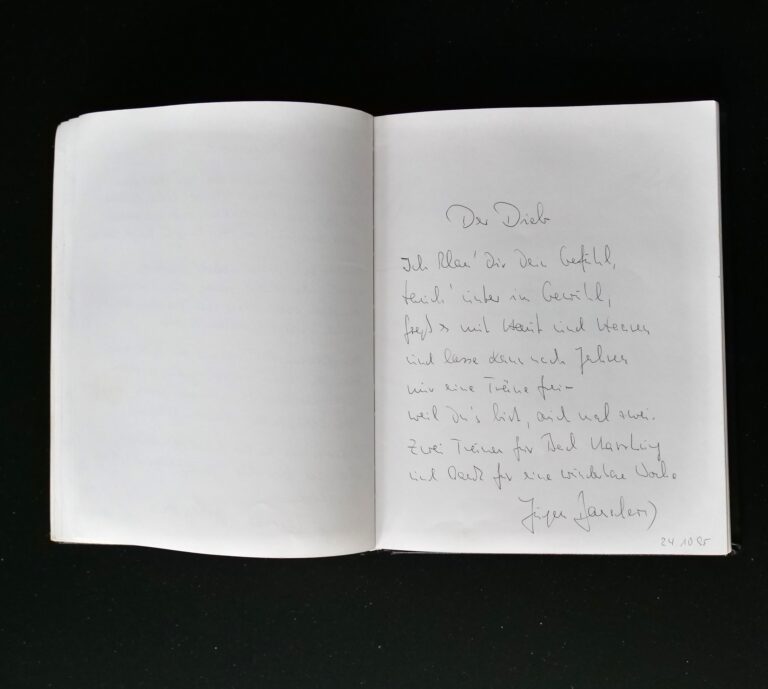 Der Dieb
Ich klau' Dir Dein Gefühl,
tauch' unter im Gewühl,
freß es mit Haut und Haaren
und lasse dann nach Jahren
nur eine Träne frei –
weil Du's bist, auch mal zwei.
Zwei Tränen für Bad
und Dank für eine wunderbare Woche
24.10.95